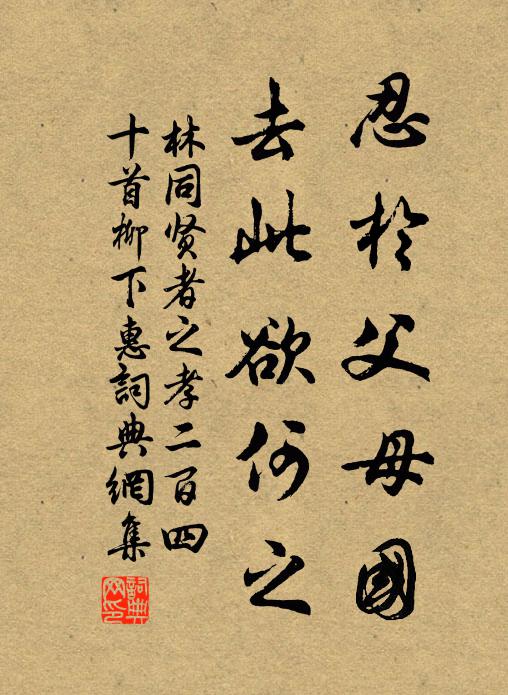 忍於父母國
去此欲何之
林同贤者之孝二百四
十首柳下惠詞典網集
詞典
网印